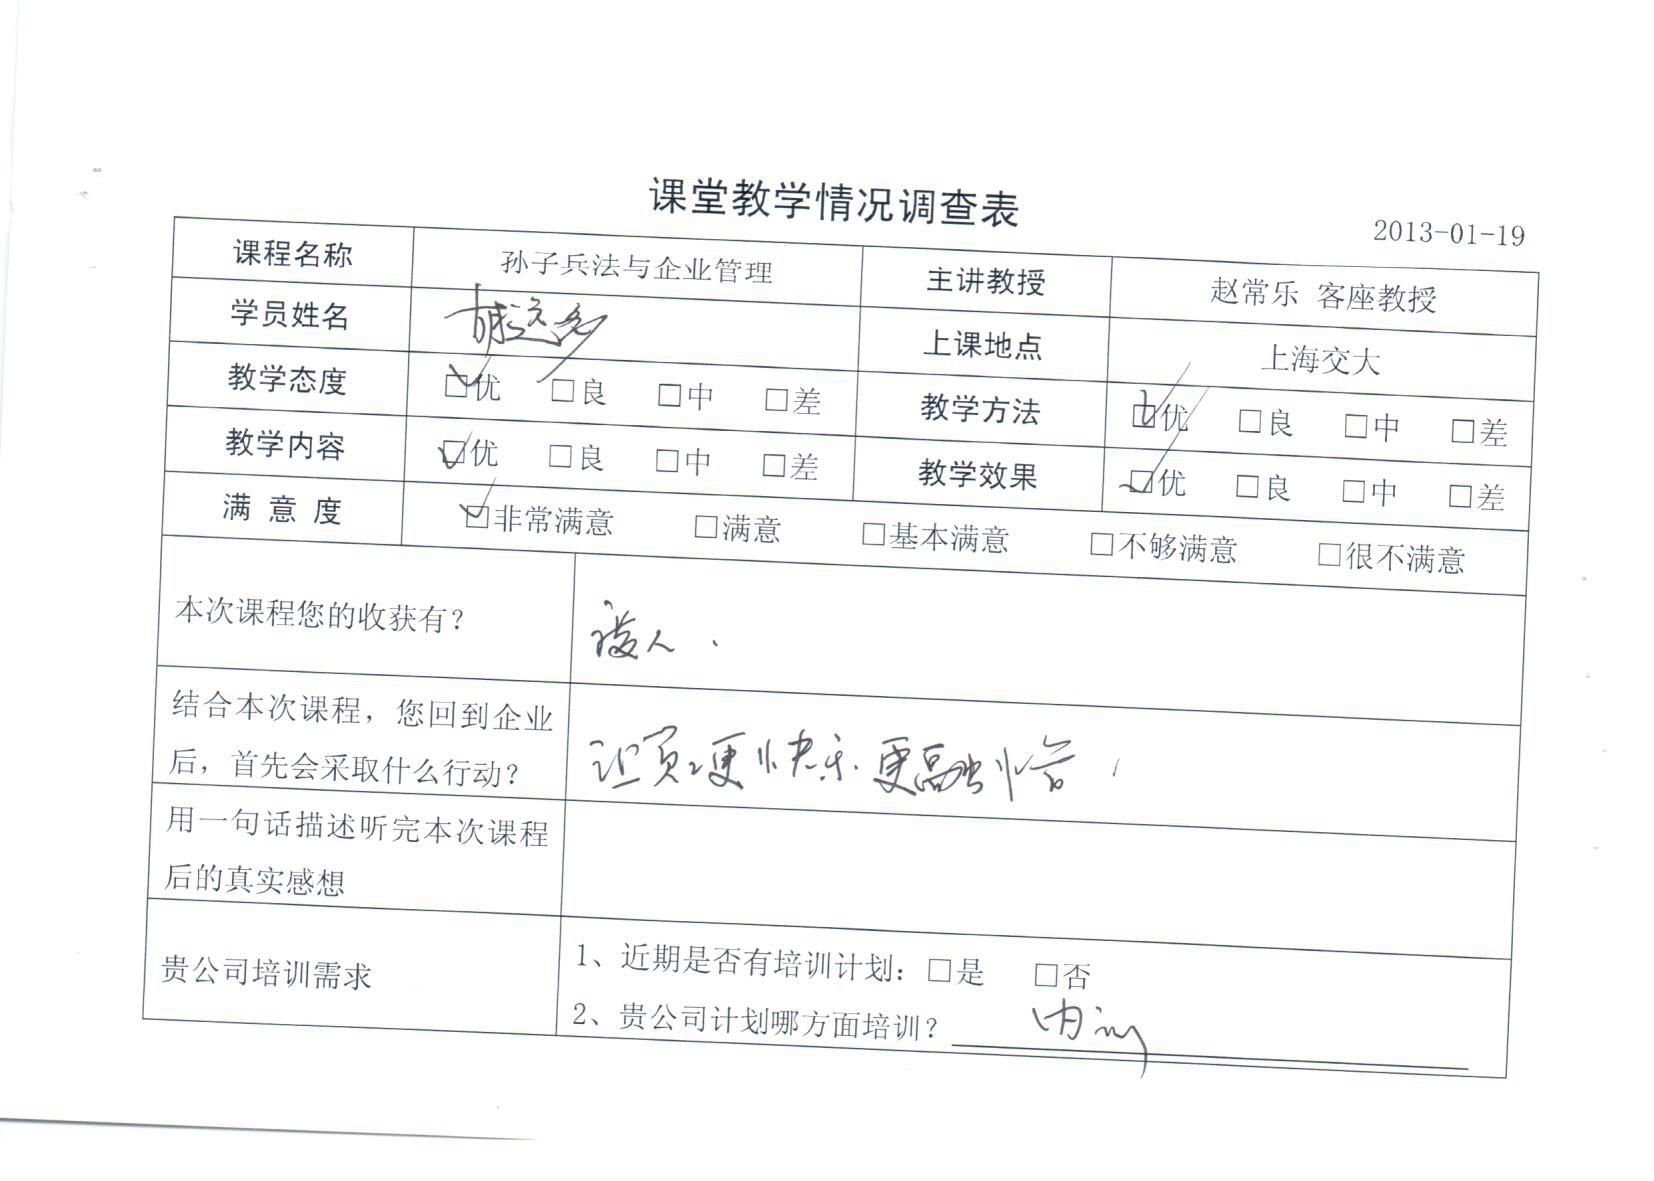 课堂教学情况调查表
2013-01-19
课程名称 孙子兵法与企业管理 主讲教授 赵常乐 客座教授
学员姓名 上课地点 上海交大
教学态度 □优 □良 □中 □差 教学方法 □优 □良 □中 □差
教学内容 □优 □良 □中 □差 教学效果 □优 □良 □中 □差
满 意 度 □非常满意 □满意 □基本满意 □不够满意 □很不满意
本次课程您的收获有?
结合本次课程，您回到企业
后，首先会采取什么行动?
让员工更快乐.更融恰.
用一句话描述听完本次课程
后的真实感想
贵公司培训需求
1、近期是否有培训计划: □是 □否
2、贵公司计划哪方面培训? 内训